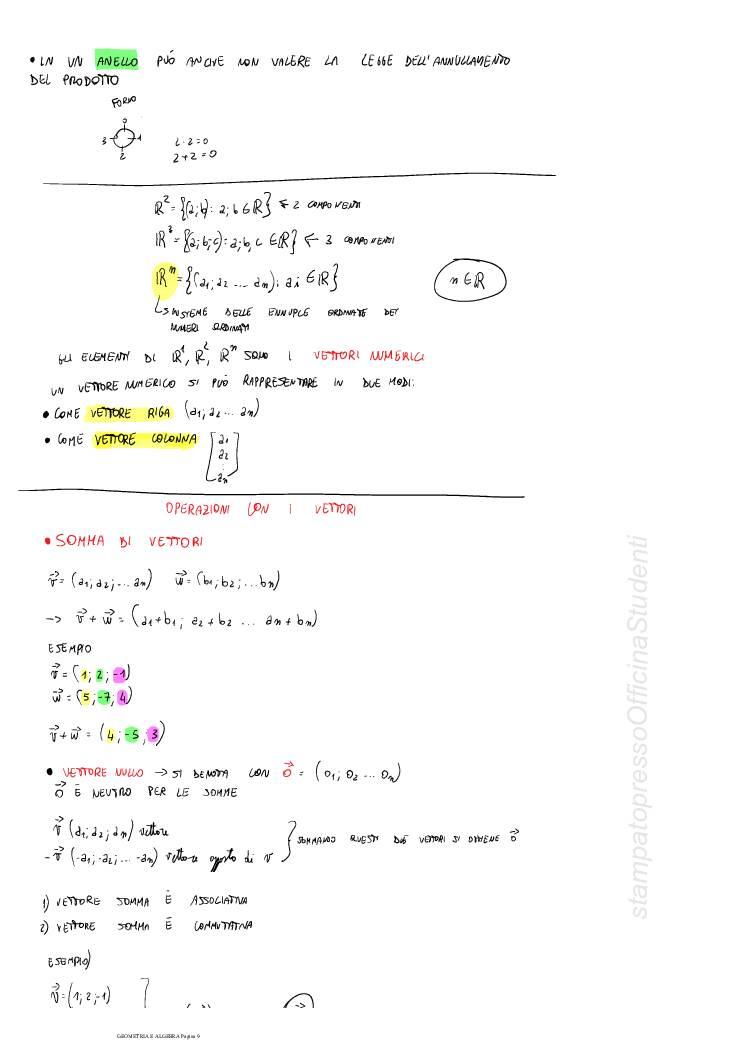 • IN UN ANELLO PUÒ ANCHE NON VALERE LA LEGGE DELL'ANNULLAMENTO
DEL PRODOTTO
0
3 1
2
2·2=0
2+2=0
ℝ²={(a;b): a;b∈ℝ} ← 2 COMPONENTI
ℝ³={(a;b;c): a;b,c ∈ℝ} ← 3 COMPONENTI
ℝⁿ={(a₁;a₂ ... aₙ): aᵢ ∈ℝ}
n∈ℝ
INSIEME DELLE ENNUPLE ORDINATE DEI
NUMERI ORDINATI
GLI ELEMENTI DI ℝ¹, ℝ², ℝⁿ SONO I VETTORI NUMERICI
UN VETTORE NUMERICO SI PUÒ RAPPRESENTARE IN DUE MODI:
• COME VETTORE RIGA (a₁;a₂ ... aₙ)
• COME VETTORE COLONNA [a₁
a₂
⋮
aₙ]
OPERAZIONI CON I VETTORI
• SOMMA DI VETTORI
v⃗=(a₁;a₂;... aₙ) w⃗=(b₁;b₂;...bₙ)
→ v⃗+w⃗=(a₁+b₁; a₂+b₂ ... aₙ+bₙ)
ESEMPIO
v⃗=(1;2;-1)
w⃗=(5;-7;4)
v⃗+w⃗=(4;-5;3)
• VETTORE NULLO → SI DENOTA CON 0⃗ = (0₁;0₂ ... 0ₙ)
0⃗ È NEUTRO PER LE SOMME
v⃗ (a₁;a₂;aₙ) vettore
-v⃗ (-a₁;-a₂;... -aₙ) vettore opposto di v
} SOMMANDO QUESTI DUE VETTORI SI OTTIENE 0⃗
1) VETTORE SOMMA È ASSOCIATIVA
2) VETTORE SOMMA È COMMUTATIVA
ESEMPIO)
v⃗=(1;2;-1)
GEOMETRIA E ALGEBRA Pagina 9
stampatopressoOfficinaStudenti